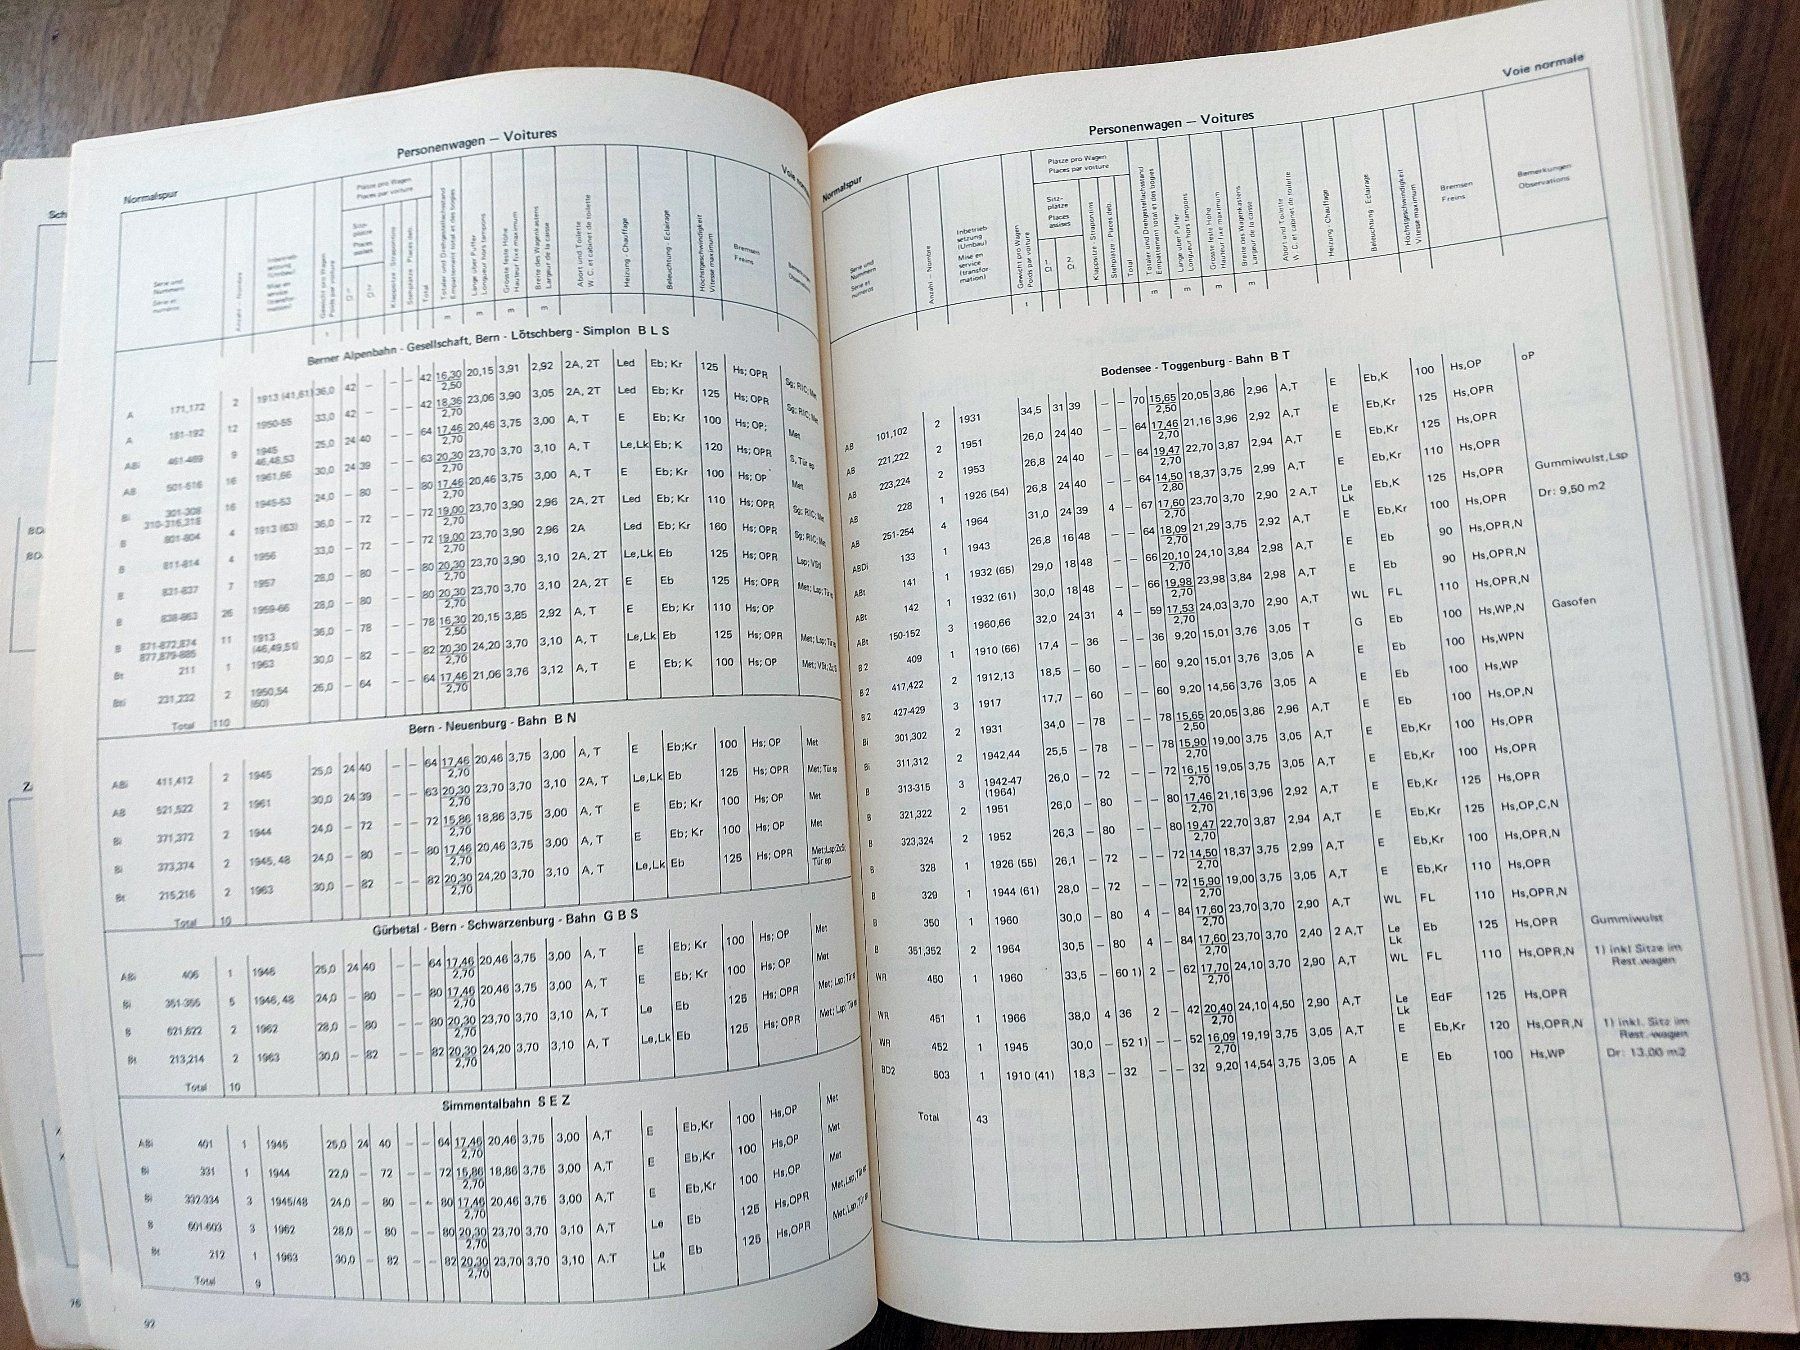 Personenwagen — Voitures
Normalspur
Voie
Serie und Nummern
Serie et numéros
Anzahl - Nombre
Inbetriebsetzung (Umbau)
Mise en service (transformation)
Gewicht pro Wagen
Poids par voiture
Plätze pro Wagen
Places par voiture
Sitzplätze
Places assises
Klappsitze - Strapontins
Stehplätze - Places deb.
Total
Totaler und Drehgestellachsstand
Empattement total et des bogies
Länge über Puffer
Longueur hors tampons
Grösste feste Höhe
Hauteur fixe maximum
Breite des Wagenkastens
Largeur de la caisse
Abort und Toilette
W. C. et cabinet de toilette
Heizung - Chauffage
Beleuchtung - Eclairage
Höchstgeschwindigkeit
Vitesse maximum
Bremsen
Freins
t m m m m
Berner Alpenbahn - Gesellschaft, Bern - Lötschberg - Simplon B L S
A 171,172 2 1913 (41,61) 36,0 42 – – – 42 16,30 2,50 20,15 3,91 2,92 2A, 2T Led Eb; Kr 125 Hs; OPR Sg; RIC; Met
A 181-192 12 1950-55 33,0 42 – – – 42 18,36 2,70 23,06 3,90 3,05 2A, 2T Led Eb; Kr 125 Hs; OPR Sg; RIC; Met
ABi 461-469 9 1945 46,48,53 25,0 24 40 – – 64 17,46 2,70 20,46 3,75 3,00 A, T E Eb; Kr 100 Hs; OP; Met
AB 501-516 16 1961,66 30,0 24 39 – – 63 20,30 2,70 23,70 3,70 3,10 A, T Le,Lk Eb; K 120 Hs; OPR S, Tür ep
Bi 301-308 310-316,318 16 1945-53 24,0 – 80 – – 80 17,46 2,70 20,46 3,75 3,00 A, T E Eb; Kr 100 Hs; OP Met
B 801-804 4 1913 (63) 36,0 – 72 – – 72 19,00 2,70 23,70 3,90 2,96 2A, 2T Led Eb; Kr 110 Hs; OPR Sg; RIC; Met
B 811-814 4 1956 33,0 – 72 – – 72 19,00 2,70 23,70 3,90 2,96 2A Led Eb; Kr 160 Hs; OPR Sg; RIC; Met
B 831-837 7 1957 28,0 – 80 – – 80 20,30 2,70 23,70 3,90 3,10 2A, 2T Le,Lk Eb 125 Hs; OPR Lsp; VSd
B 838-863 26 1959-66 28,0 – 80 – – 80 20,30 2,70 23,70 3,70 3,10 2A, 2T E Eb 125 Hs; OPR Met; Lsp; Tür ep
B 871-872,874 877,879-885 11 1913 (46,49,51) 36,0 – 78 – – 78 16,30 2,50 20,15 3,85 2,92 A, T E Eb; Kr 110 Hs; OP
Bt 211 1 1963 30,0 – 82 – – 82 20,30 2,70 24,20 3,70 3,10 A, T Le,Lk Eb 125 Hs; OPR Met; Lsp; Tür
Bti 231,232 2 1950,54 (60) 26,0 – 64 – – 64 17,46 2,70 21,06 3,76 3,12 A, T E Eb; K 100 Hs; OP
Total 110
Bern - Neuenburg - Bahn B N
ABi 411,412 2 1945 25,0 24 40 – – 64 17,46 2,70 20,46 3,75 3,00 A, T E Eb;Kr 100 Hs; OP Met
AB 521,522 2 1961 30,0 24 39 – – 63 20,30 2,70 23,70 3,70 3,10 2A, T Le,Lk Eb 125 Hs; OPR Met; Tür ep
Bi 371,372 2 1944 24,0 – 72 – – 72 15,86 2,70 18,86 3,75 3,00 A, T E Eb; Kr 100 Hs; OP Met
Bi 373,374 2 1945, 48 24,0 – 80 – – 80 17,46 2,70 20,46 3,75 3,00 A, T E Eb; Kr 100 Hs; OP Met
Bt 215,216 2 1963 30,0 – 82 – – 82 20,30 2,70 24,20 3,70 3,10 A, T Le,Lk Eb 125 Hs; OPR Tür ep
Total 10
Gürbetal - Bern - Schwarzenburg - Bahn G B S
ABi 406 1 1946 25,0 24 40 – – 64 17,46 2,70 20,46 3,75 3,00 A, T E Eb; Kr 100 Hs; OP Met
Bi 351-355 5 1946, 48 24,0 – 80 – – 80 17,46 2,70 20,46 3,75 3,00 A, T E Eb; Kr 100 Hs; OP Met
B 621,622 2 1962 28,0 – 80 – – 80 20,30 2,70 23,70 3,70 3,10 A, T Le Eb 125 Hs; OPR Met; Lsp; Tür
Bt 213,214 2 1963 30,0 – 82 – – 82 20,30 2,70 24,20 3,70 3,10 A, T Le,Lk Eb 125 Hs; OPR Met; Lsp; Tür
Total 10
Simmentalbahn S E Z
ABi 401 1 1945 25,0 24 40 – – 64 17,46 2,70 20,46 3,75 3,00 A,T E Eb,Kr 100 Hs,OP Met
Bi 331 1 1944 22,0 – 72 – – 72 15,86 2,70 18,86 3,75 3,00 A,T E Eb,Kr 100 Hs,OP Met
Bi 332-334 3 1945/48 24,0 – 80 – – 80 17,46 2,70 20,46 3,75 3,00 A,T E Eb,Kr 100 Hs,OP Met
B 601-603 3 1962 28,0 – 80 – – 80 20,30 2,70 23,70 3,70 3,10 A,T Le Eb 125 Hs,OPR Met,Lsp,Tür
Bt 212 1 1963 30,0 – 82 – – 82 20,30 2,70 23,70 3,70 3,10 A,T Le Lk Eb 125 Hs,OPR Met,Lsp,Tür
Total 9
76
92
Voie normale
Personenwagen — Voitures
Normalspur
Serie und Nummern
Serie et numéros
Anzahl - Nombre
Inbetriebsetzung (Umbau)
Mise en service (transformation)
Gewicht pro Wagen
Poids par voiture
Plätze pro Wagen
Places par voiture
Sitzplätze
Places assises
1. Cl 2. Cl
Klappsitze - Strapontins
Stehplätze - Places deb.
Total
Totaler und Drehgestellachsstand
Empattement total et des bogies
Länge über Puffer
Longueur hors tampons
Grösste feste Höhe
Hauteur fixe maximum
Breite des Wagenkastens
Largeur de la caisse
Abort und Toilette
W. C. et cabinet de toilette
Heizung - Chauffage
Beleuchtung - Eclairage
Höchstgeschwindigkeit
Vitesse maximum
Bremsen
Freins
Bemerkungen
Observations
t m m m m
Bodensee - Toggenburg - Bahn B T
AB 101,102 2 1931 34,5 31 39 – – 70 15,65 2,50 20,05 3,86 2,96 A,T E Eb,K 100 Hs,OP oP
AB 221,222 2 1951 26,0 24 40 – – 64 17,46 2,70 21,16 3,96 2,92 A,T E Eb,Kr 125 Hs,OPR
AB 223,224 2 1953 26,8 24 40 – – 64 19,47 2,70 22,70 3,87 2,94 A,T E Eb,Kr 125 Hs,OPR
AB 228 1 1926 (54) 26,8 24 40 – – 64 14,50 2,80 18,37 3,75 2,99 A,T E Eb,Kr 110 Hs,OPR
AB 251-254 4 1964 31,0 24 39 4 – 67 17,60 2,70 23,70 3,70 2,90 2 A,T Le Lk Eb,K 125 Hs,OPR Gummiwulst,Lsp
ABDi 133 1 1943 26,8 16 48 – – 64 18,09 2,70 21,29 3,75 2,92 A,T E Eb,Kr 100 Hs,OPR Dr: 9,50 m2
ABt 141 1 1932 (65) 29,0 18 48 – – 66 20,10 2,70 24,10 3,84 2,98 A,T E Eb 90 Hs,OPR,N
ABt 142 1 1932 (61) 30,0 18 48 – – 66 19,98 2,70 23,98 3,84 2,98 A,T E Eb 90 Hs,OPR,N
ABt 150-152 3 1960,66 32,0 24 31 4 – 59 17,53 2,70 24,03 3,70 2,90 A,T WL FL 110 Hs,OPR,N
B 2 409 1 1910 (66) 17,4 – 36 – – 36 9,20 15,01 3,76 3,05 T G Eb 100 Hs,WP,N Gasofen
B 2 417,422 2 1912,13 18,5 – 60 – – 60 9,20 15,01 3,76 3,05 A E Eb 100 Hs,WPN
B 2 427-429 3 1917 17,7 – 60 – – 60 9,20 14,56 3,76 3,05 A E Eb 100 Hs,WP
Bi 301,302 2 1931 34,0 – 78 – – 78 15,65 2,50 20,05 3,86 2,96 A,T E Eb 100 Hs,OP,N
Bi 311,312 2 1942,44 25,5 – 78 – – 78 15,90 2,70 19,00 3,75 3,05 A,T E Eb,Kr 100 Hs,OPR
B 313-315 3 1942-47 (1964) 26,0 – 72 – – 72 16,15 2,70 19,05 3,75 3,05 A,T E Eb,Kr 100 Hs,OPR
B 321,322 2 1951 26,0 – 80 – – 80 17,46 2,70 21,16 3,96 2,92 A,T E Eb,Kr 125 Hs,OPR
B 323,324 2 1952 26,3 – 80 – – 80 19,47 2,70 22,70 3,87 2,94 A,T E Eb,Kr 125 Hs,OP,C,N
B 328 1 1926 (55) 26,1 – 72 – – 72 14,50 2,70 18,37 3,75 2,99 A,T E Eb,Kr 100 Hs,OPR,N
B 329 1 1944 (61) 28,0 – 72 – – 72 15,90 2,70 19,00 3,75 3,05 A,T E Eb,Kr 110 Hs,OPR
B 350 1 1960 30,0 – 80 4 – 84 17,60 2,70 23,70 3,70 2,90 A,T WL FL 110 Hs,OPR,N
B 351,352 2 1964 30,5 – 80 4 – 84 17,60 2,70 23,70 3,70 2,40 2 A,T Le Lk Eb 125 Hs,OPR Gummiwulst
WR 450 1 1960 33,5 – 60 1) 2 – 62 17,70 2,70 24,10 3,70 2,90 A,T WL FL 110 Hs,OPR,N 1) inkl Sitze im Rest.wagen
WR 451 1 1966 38,0 4 36 2 – 42 20,40 2,70 24,10 4,50 2,90 A,T Le Lk EdF 125 Hs,OPR
WR 452 1 1945 30,0 – 52 1) – – 52 16,09 2,70 19,19 3,75 3,05 A,T E Eb,Kr 120 Hs,OPR,N 1) inkl. Sitz im Rest.-wagen
BD2 503 1 1910 (41) 18,3 – 32 – – 32 9,20 14,54 3,75 3,05 A E Eb 100 Hs,WP Dr: 13,00 m2
Total 43
93